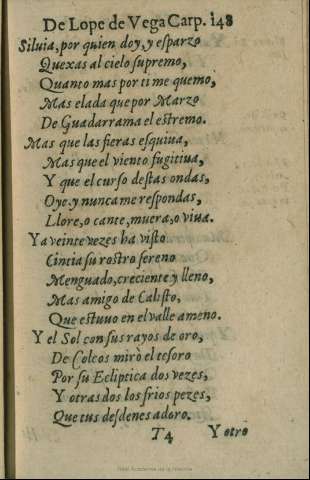 De Lope de Vega Carp. 148
Siluia, por quien doy, y esparzo
Quexas al cielo supremo,
Quanto mas por ti me quemo,
Mas elada que por Marzo
De Guadarrama el estremo.
Mas que las fieras esquiua,
Mas que el viento fugitiua,
Y que el curso destas ondas,
Oye. y nunca me respondas,
Llore, o cante, muera, o viua.
Ya veinte vezes ha visto
Cintia su rostro sereno
Menguado, creciente y lleno,
Mas amigo de Calisto,
Que estuuo en el valle ameno.
Y el Sol con sus rayos de oro,
De Colcos mirò el tesoro
Por su Ecliptica dos vezes,
Y otras dos los frios pezes,
Que tus desdenes adoro.
T4 Y otro
Real Academia de la Historia